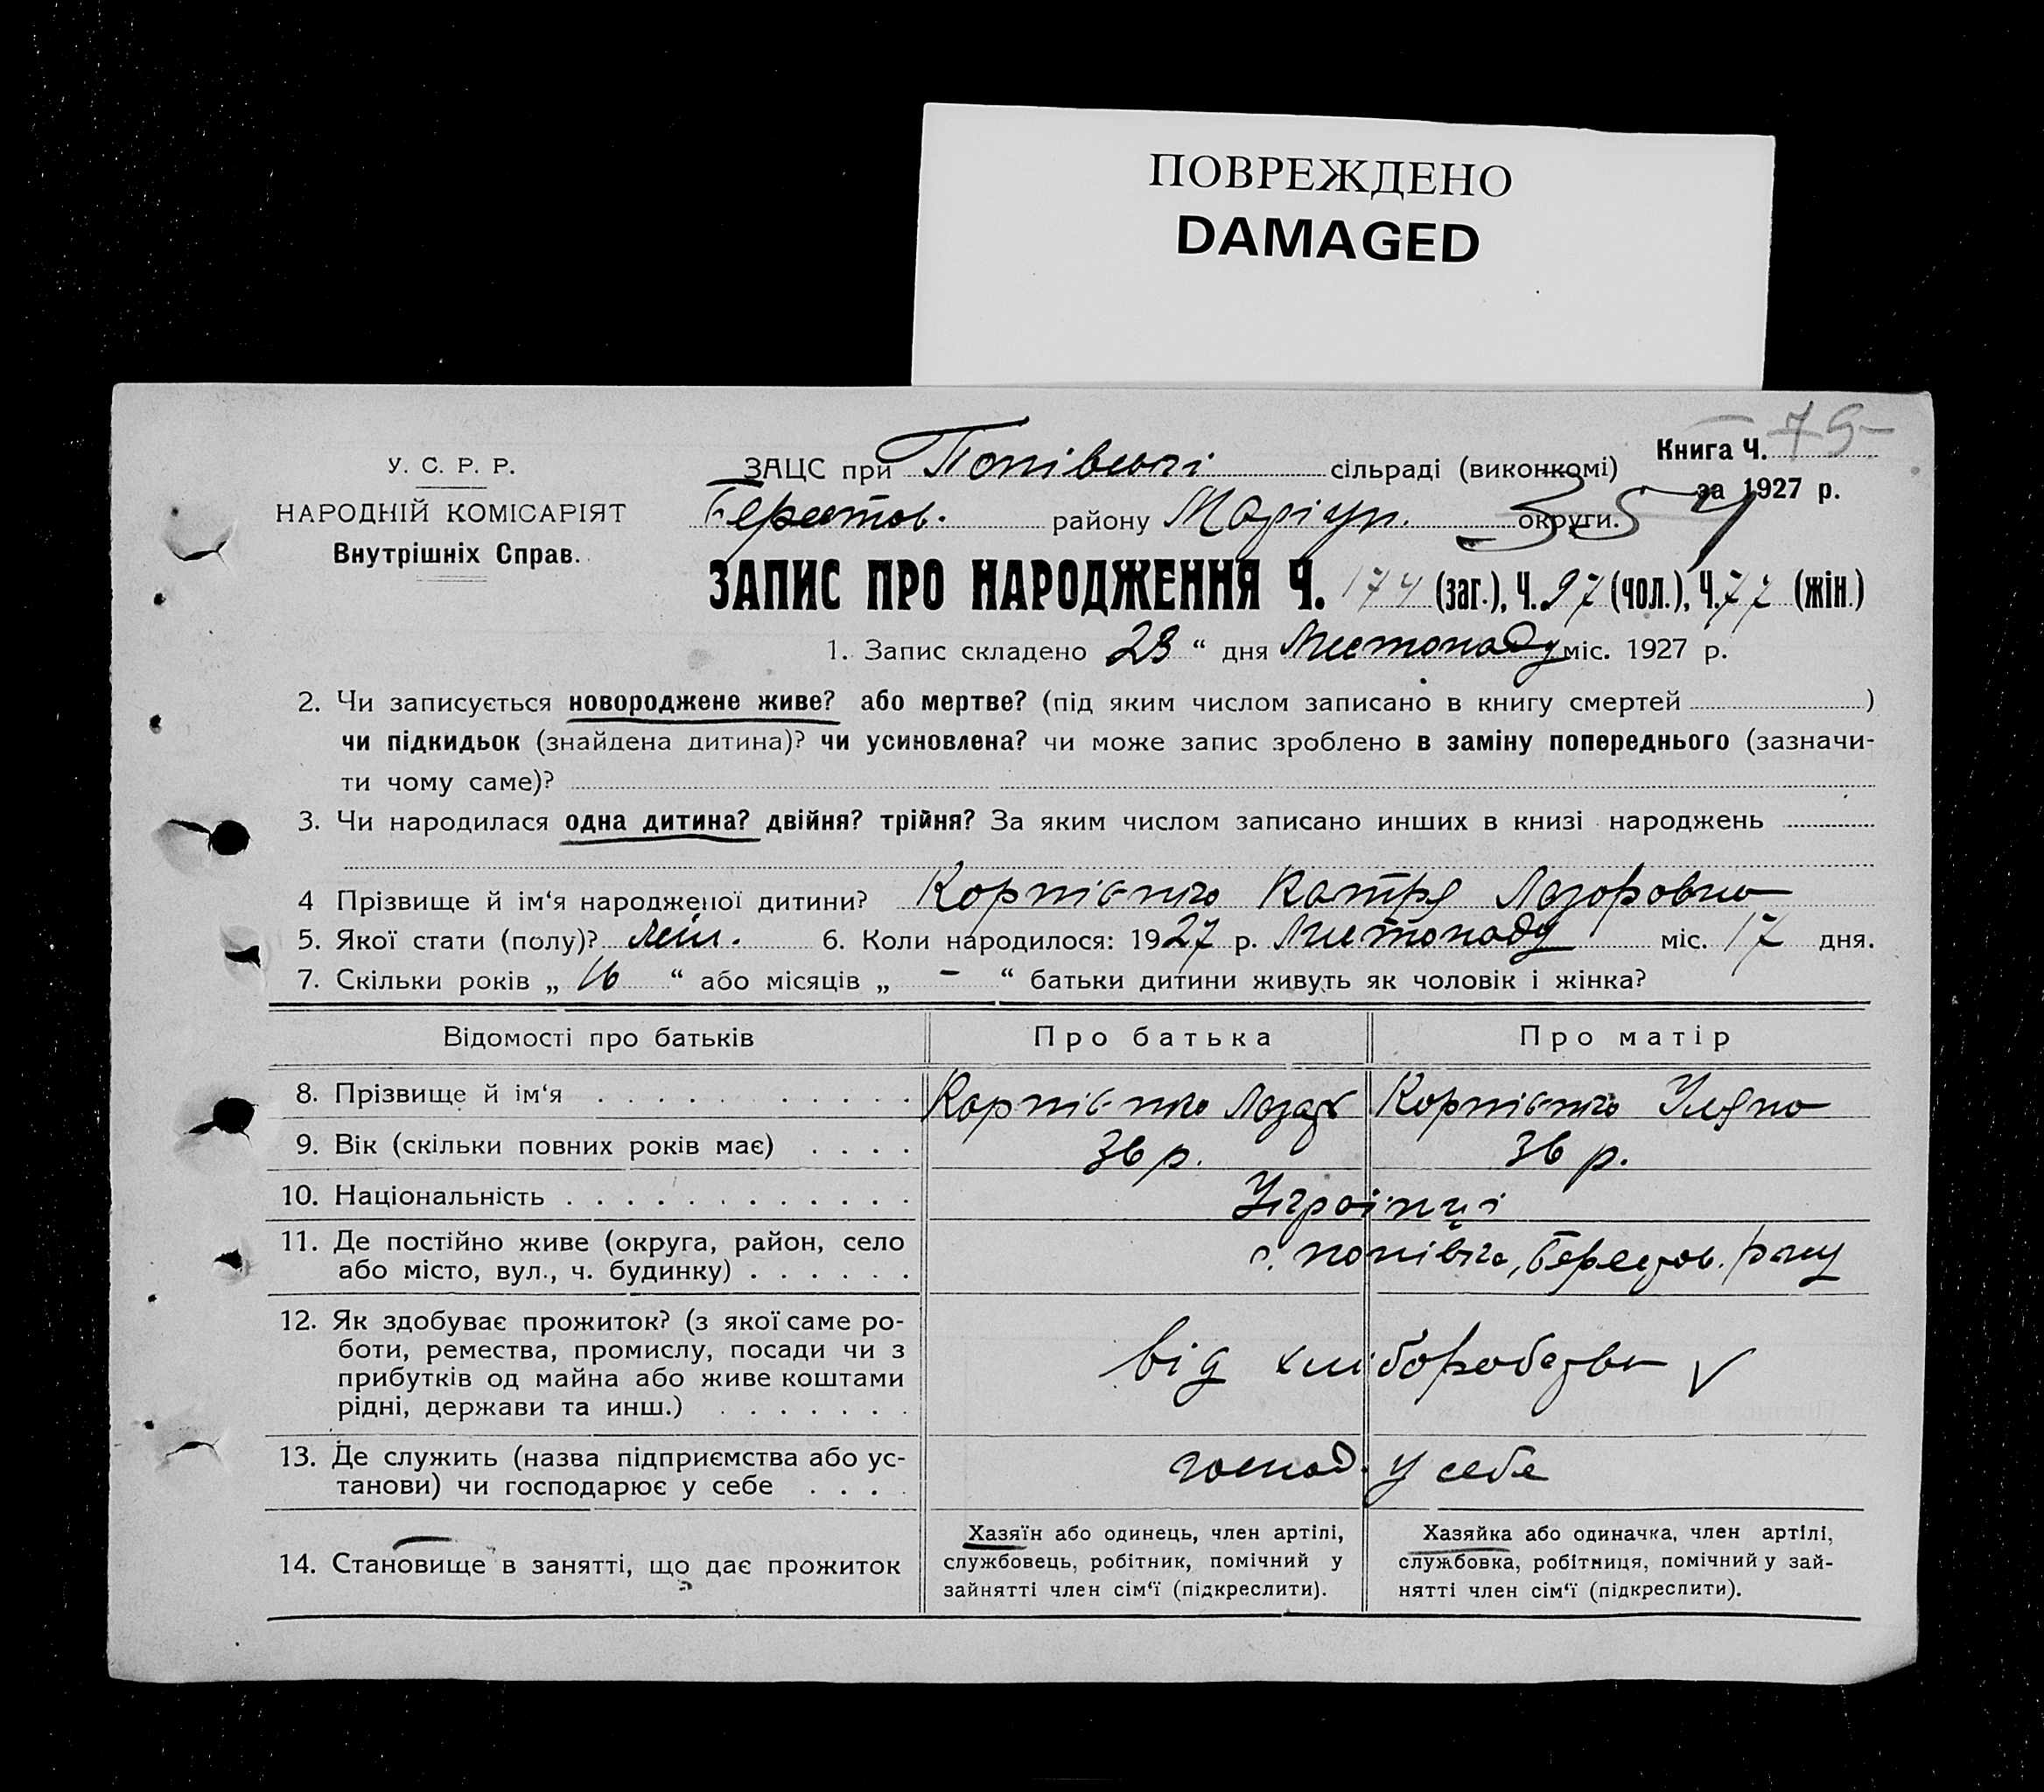 ПОВРЕЖДЕНО
DAMAGED
У. С. Р. Р.
НАРОДНІЙ КОМІСАРІЯТ
Внутрішніх Справ.
ЗАЦС при Попівській сільраді (виконкомі)
Книга Ч. 75
за 1927 р.
Берестов. району Маріуп. округи.
354
ЗАПИС ПРО НАРОДЖЕННЯ Ч. 174 (заг.), Ч. 97 (чол.), Ч. 77 (жін.)
1. Запис складено 23 “ дня Листопаду міс. 1927 р.
2. Чи записується новороджене живе? або мертве? (під яким числом записано в книгу смертей )
чи підкидьок (знайдена дитина)? чи усиновлена? чи може запис зроблено в заміну попереднього (зазначи-
ти чому саме)?
3. Чи народилася одна дитина? двійня? трійня? За яким числом записано инших в книзі народжень
4 Прізвище й ім‘я народженої дитини? Корпієнко Катря Лазоровна
5. Якої стати (полу)? жін. 6. Коли народилося: 1927 р. Листопаду міс. 17 дня.
7. Скільки років „ 16 “ або місяців „ – “ батьки дитини живуть як чоловік і жінка?
Відомості про батьків Про батька Про матір
8. Прізвище й ім‘я Корпієнко Лазарь Корпієнко Уляна
9. Вік (скільки повних років має) 36 р. 36 р.
10. Національність Українці
11. Де постійно живе (округа, район, село
або місто, вул., ч. будинку) с. Попівка, Берестов. р-ну
12. Як здобуває прожиток? (з якої саме ро-
боти, ремества, промислу, посади чи з
прибутків од майна або живе коштами
рідні, держави та инш.)
від хліборобства
13. Де служить (назва підприємства або ус-
танови) чи господарює у себе
господ. у себе
14. Становище в занятті, що дає прожиток
Хазяїн або одинець, член артілі,
службовець, робітник, помічний у
зайнятті член сім‘ї (підкреслити).
Хазяйка або одиначка, член артілі,
службовка, робітниця, помічний у зай-
нятті член сім‘ї (підкреслити).